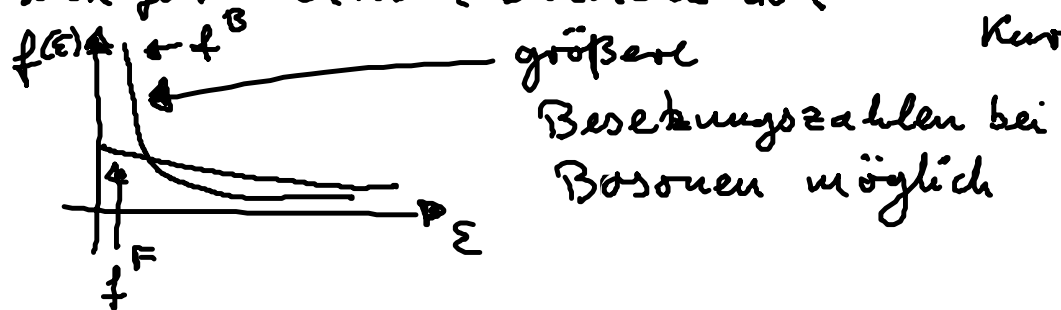 f(ε) ← f^B größere
Besetzungszahlen bei
Bosonen möglich
ε
f^F